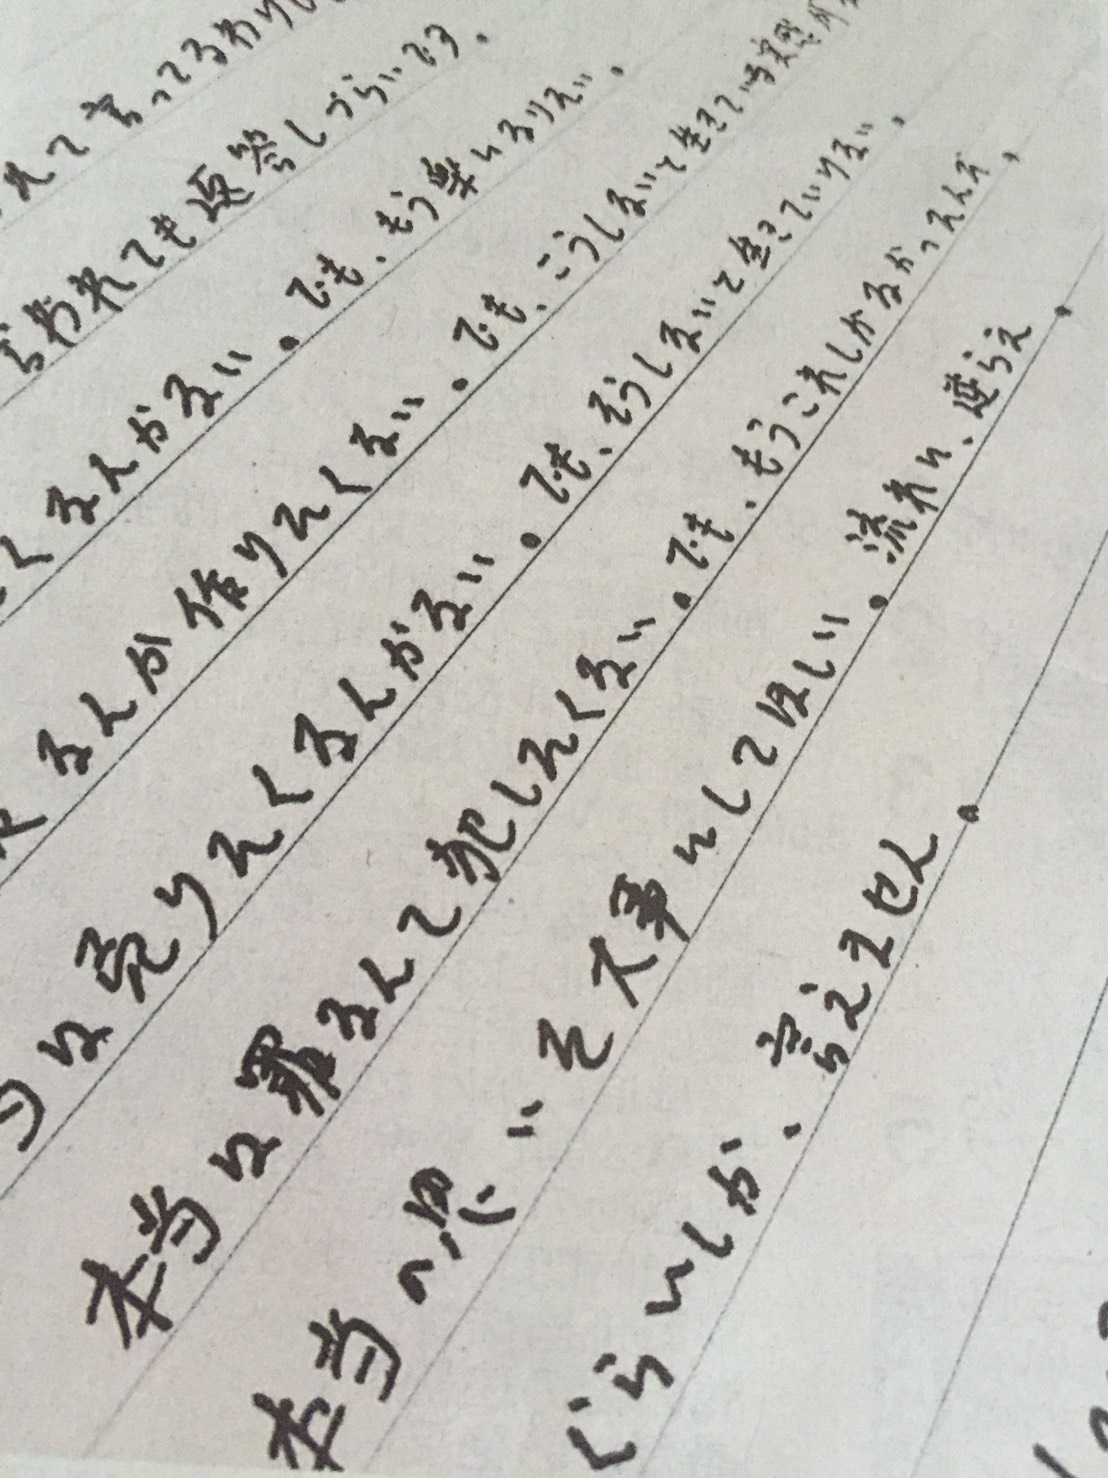 れて言ってるわけ
言われても返答しづらいです。
くなんかない。でも、もう楽になりたい。
なんか作りたくない。でも、こうしないと生きている実感が
は売りたくなんかない。でも、そうしないと生きていけない。
本当は罪なんて犯したくない。でも、もうこれしかなかったんだ。
本当の思いを大事にしてほしい。流れに、逆らえ。
ぐらいしか、言えません。